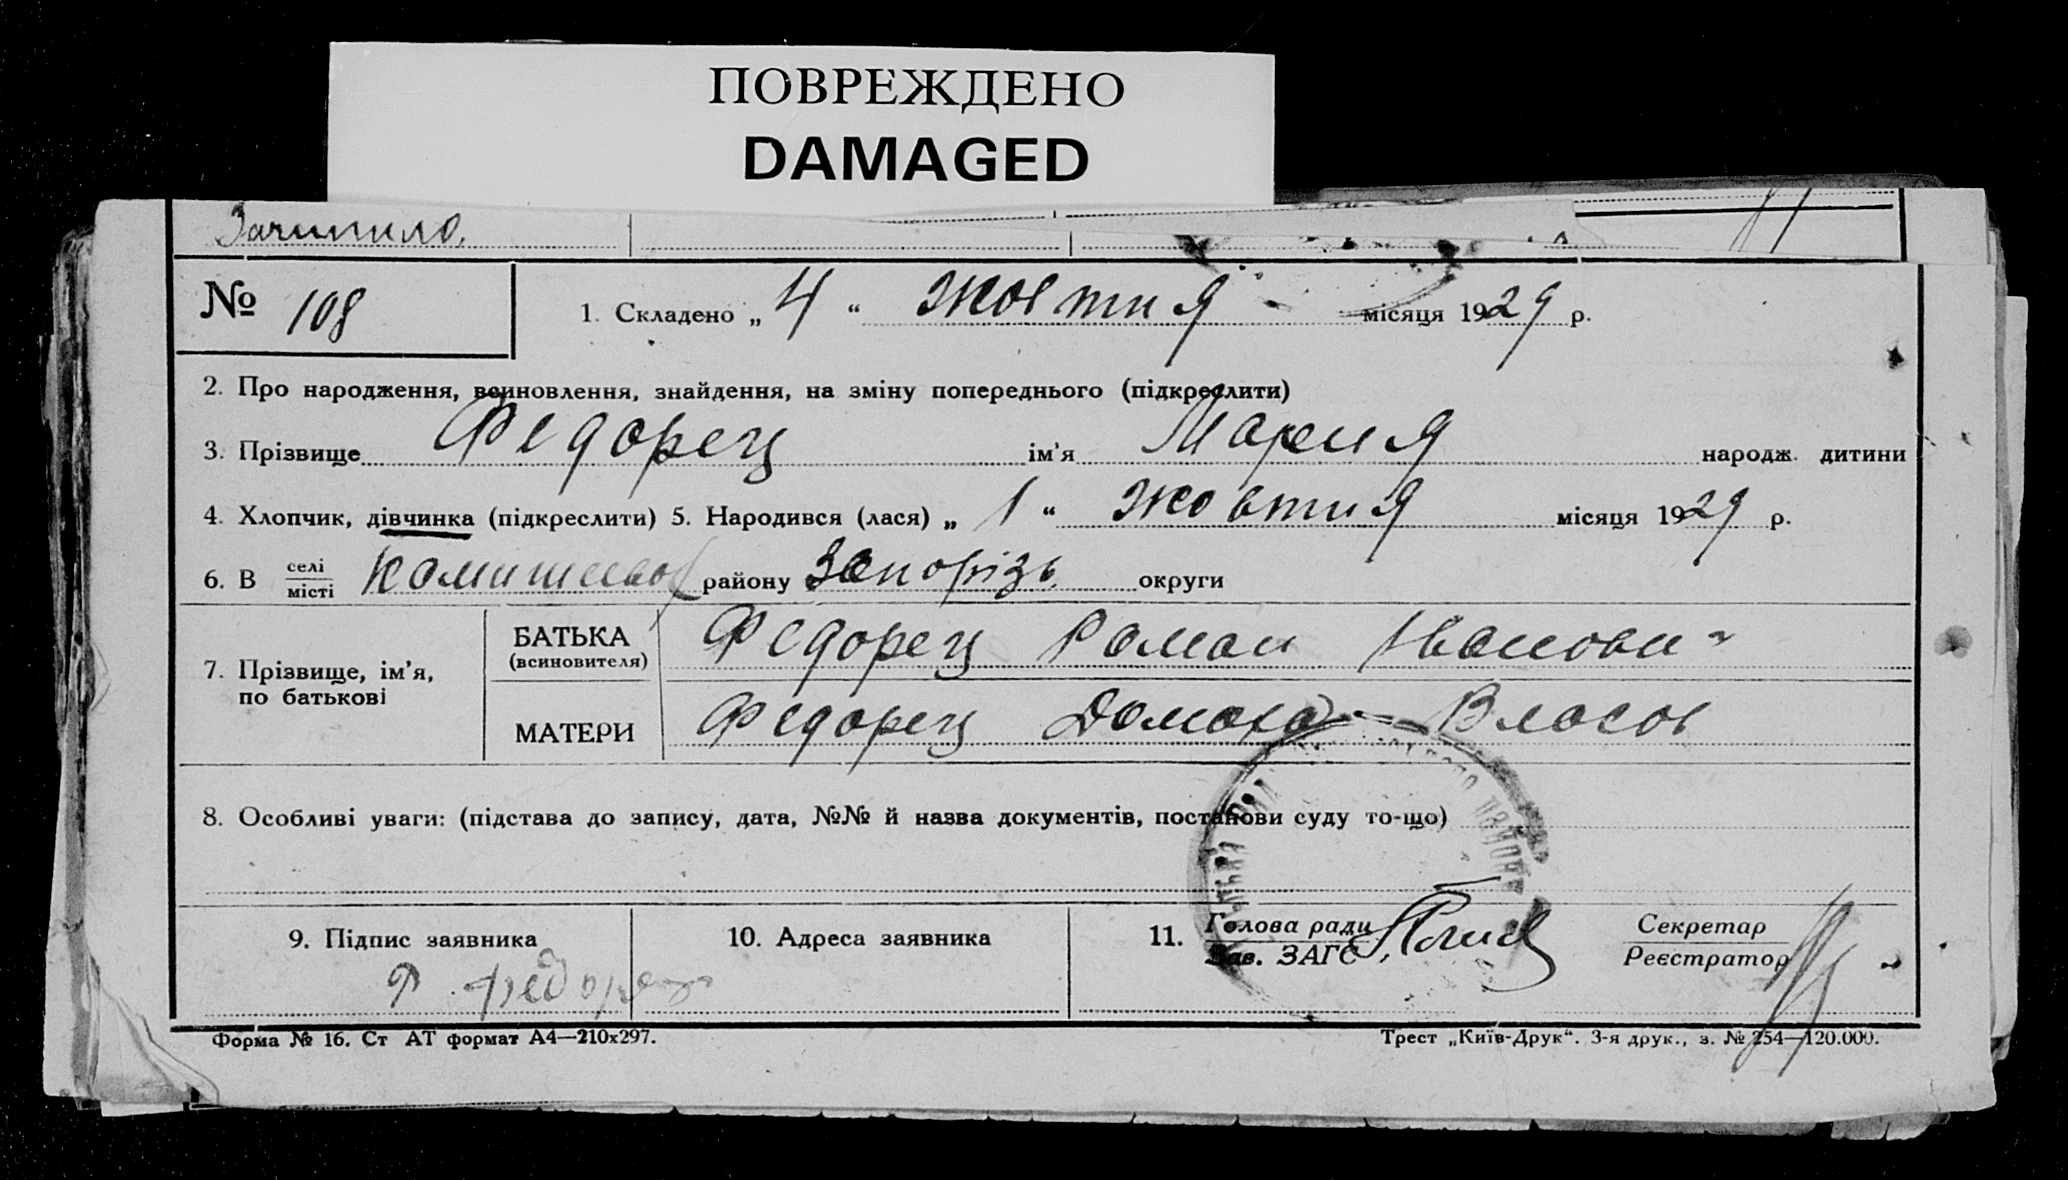 ПОВРЕЖДЕНО
DAMAGED
№ 108
1. Складено „ 4 “ жовтня місяця 1929 р.
2. Про народження, всиновлення, знайдення, на зміну попереднього (підкреслити)
3. Прізвище Федорец ім'я Мария народж. дитини
4. Хлопчик, дівчинка (підкреслити) 5. Народився (лася) „ 1 “ жовтня місяця 1929 р.
6. В селі/місті району Запорізь округи
7. Прізвище, ім'я, по батькові
БАТЬКА (всиновителя) Федорец Роман Іванович
МАТЕРИ Федорец Домаха Власов
8. Особливі уваги: (підстава до запису, дата, №№ й назва документів, постанови суду то-що)
9. Підпис заявника 10. Адреса заявника 11. Голова ради/Зав. ЗАГС Секретар/Реєстратор
Федорец
Форма № 16. Ст АТ формат А4—210х297. Трест „Київ-Друк“. 3-я друк., з. № 254—120.000.